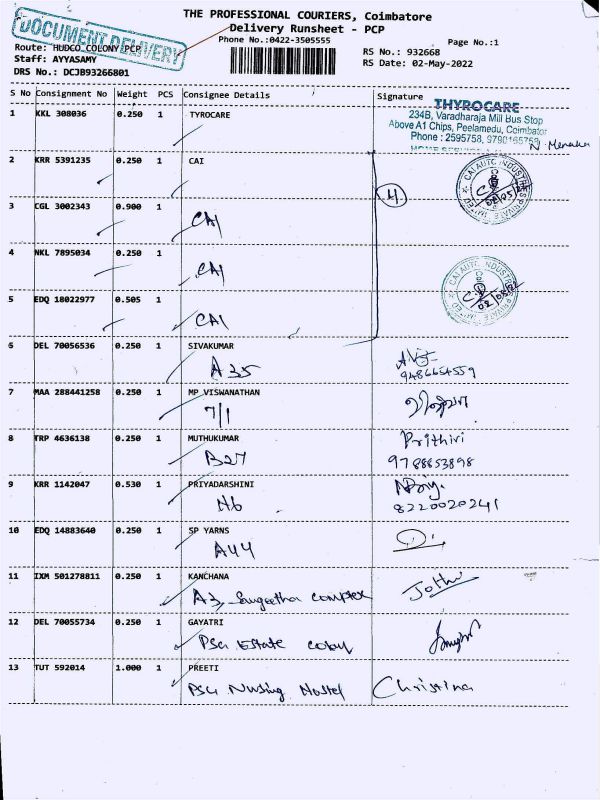 THE PROFESSIONAL COURIERS, Coimbatore
Delivery Runsheet - PCP
DOCUMENT DELIVERY
Phone No.:0422-3505555
Page No.:1
Route: HUDCO COLONY PCP
RS No.: 932668
Staff: AYYASAMY
RS Date: 02-May-2022
DRS No.: DCJB93266801
S No Consignment No Weight PCS Consignee Details Signature
1 KKL 308036 0.250 1 TYROCARE
THYROCARE
234B, Varadharaja Mill Bus Stop
Above A1 Chips, Peelamedu, Coimbator
Phone : 2595758,
2 KRR 5391235 0.250 1 CAI
4
CAI AUTO INDUSTRIES PRIVATE LIMITED
3 CGL 3002343 0.900 1
CAI
4 NKL 7895034 0.250 1
CAI
CAI AUTO INDUSTRIES PRIVATE LIMITED
5 EDQ 18022977 0.505 1
CAI
6 DEL 70056536 0.250 1 SIVAKUMAR
A35
9486654559
7 MAA 288441258 0.250 1 MP VISWANATHAN
7/1
8 TRP 4636138 0.250 1 MUTHUKUMAR
Prithivi
B27
9788653898
9 KRR 1142047 0.530 1 PRIYADARSHINI
N6
8220020241
10 EDQ 14883640 0.250 1 SP YARNS
A44
11 IXM 501278811 0.250 1 KANCHANA
Jothi
A3, Sangeetha complex
12 DEL 70055734 0.250 1 GAYATRI
PSG Estate colony
13 TUT 592014 1.000 1 PREETI
PSG Nursing Hostel Christina